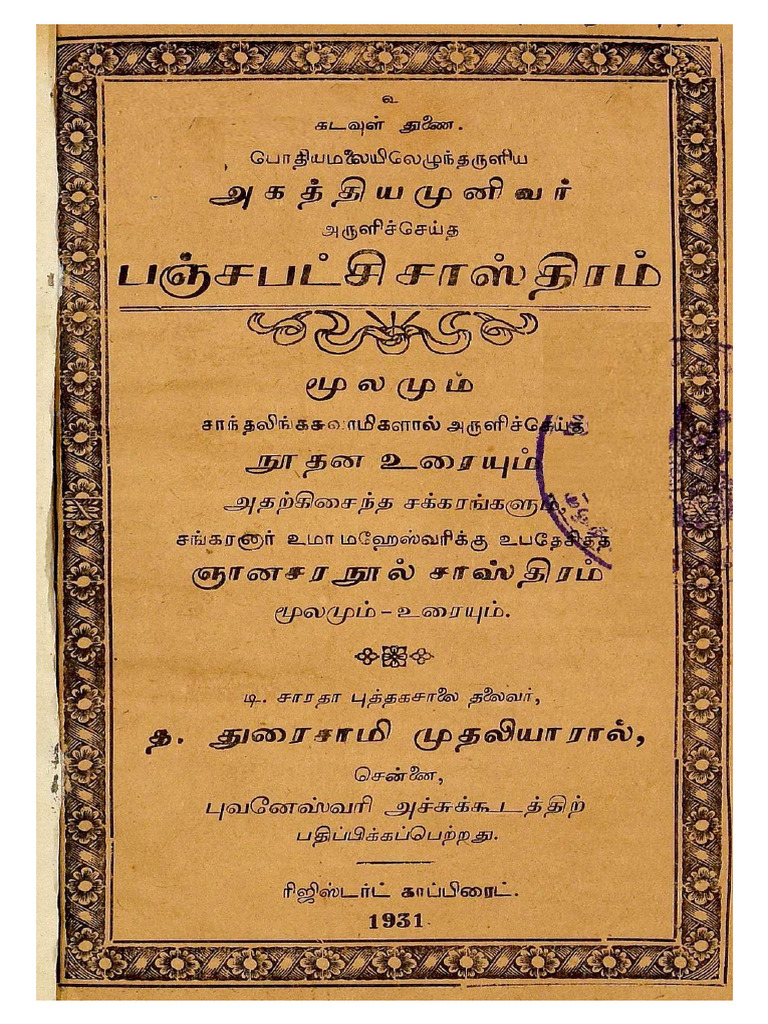 உ
கடவுள் துணை.
பொதியமலையிலெழுந்தருளிய
அகத்தியமுனிவர்
அருளிச்செய்த
பஞ்சபட்சிசாஸ்திரம்
மூலமும்
சாந்தலிங்கசுவாமிகளால் அருளிச்செய்த
நூதன உரையும்
அதற்கிசைந்த சக்கரங்களும்,
சங்கரனார் உமாமஹேஸ்வரிக்கு உபதேசித்த
ஞானசரநூல் சாஸ்திரம்
மூலமும்-உரையும்.
டி. சாரதா புத்தகசாலை தலைவர்,
த. துரைசாமி முதலியாரால்,
சென்னை,
புவனேஸ்வரி அச்சுக்கூடத்திற்
பதிப்பிக்கப்பெற்றது.
ரிஜிஸ்டர்ட் காப்பிரைட்.
1931